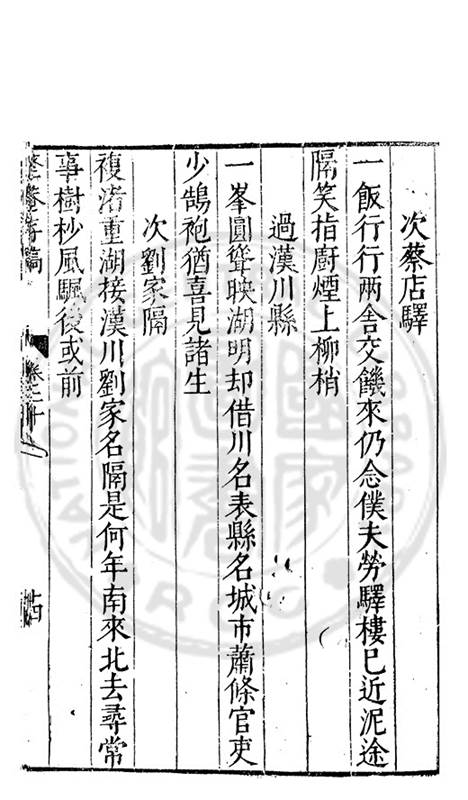 次蔡店驛
一飯行行兩舍交饑來仍念僕夫勞驛樓已近泥途
隔笑指廚煙上柳梢
過漢川縣
一峯圓聳映湖明却借川名表縣名城市蕭條官吏
少鵠袍猶喜見諸生
次劉家隔
複渚重湖接漢川劉家名隔是何年南來北去尋常
事樹杪風颿後或前
卷二十